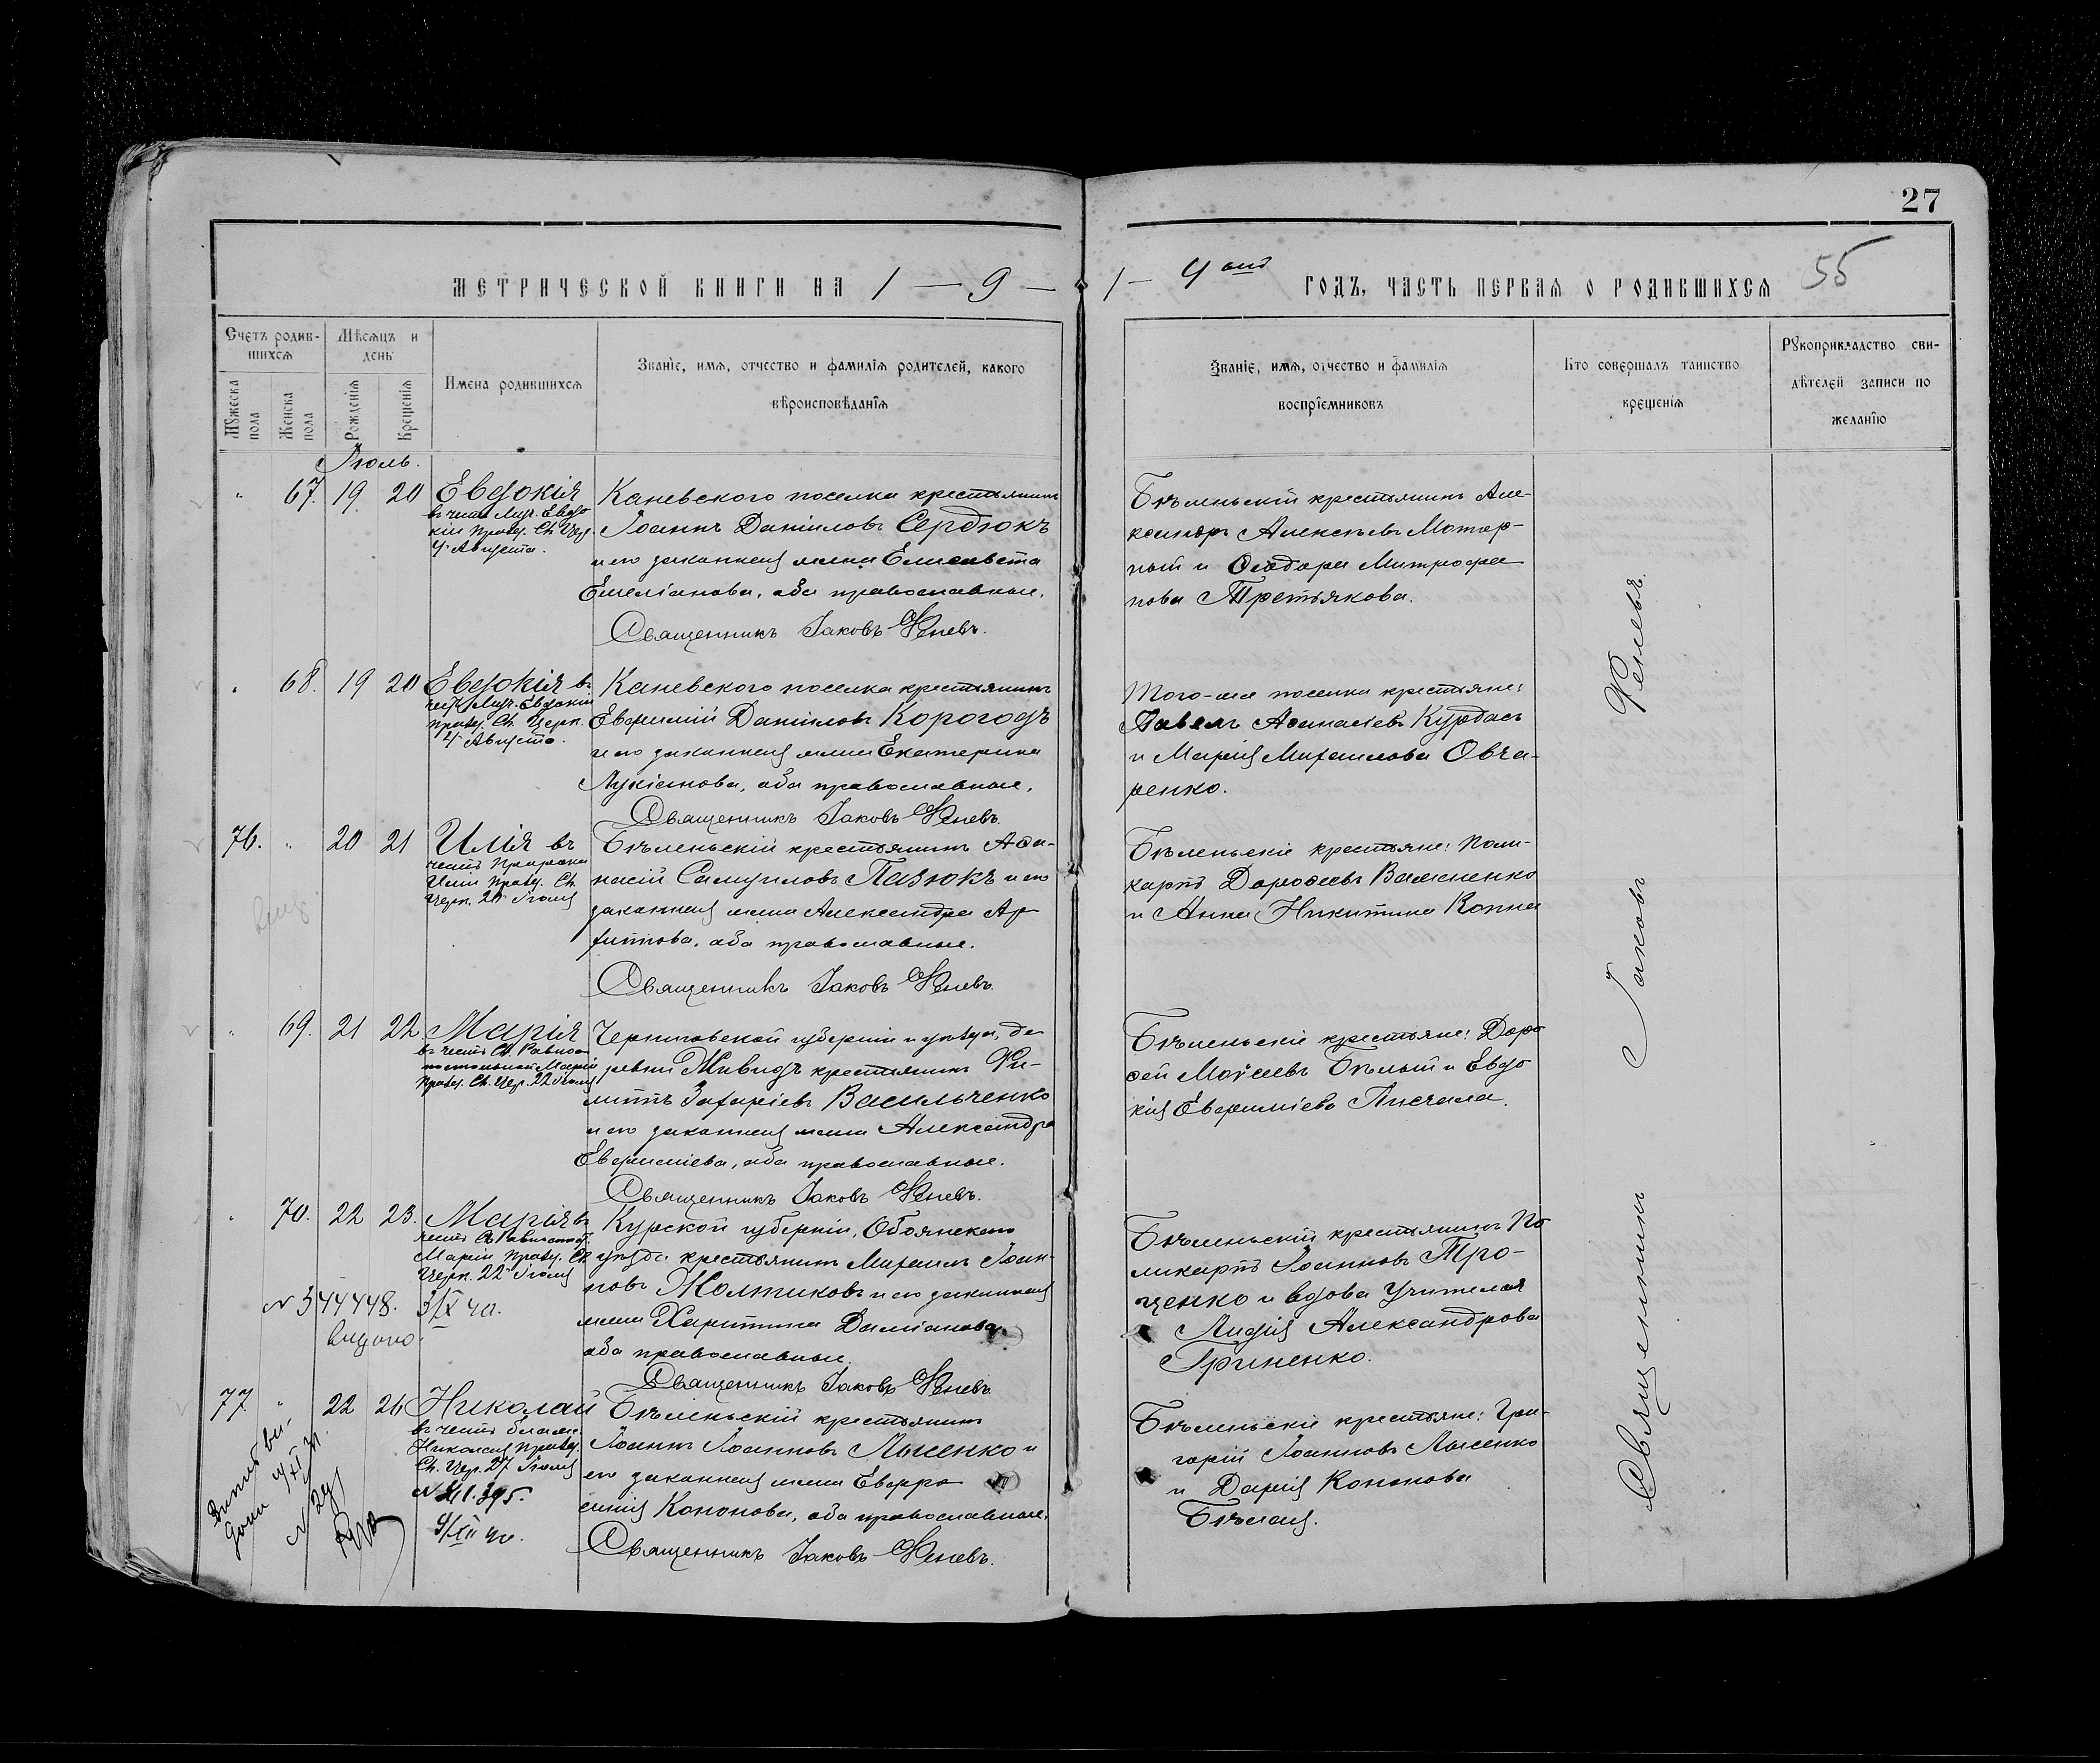 27
МЕТРИЧЕСКОЙ КНИГИ НА 1 — 9 —
1 — 4 ГОДЪ, ЧАСТЬ ПЕРВАЯ О РОДИВШИХСЯ
55
Счетъ родив-
шихся
Мѣсяцъ и
день
Мужеска
пола
Женска
пола
Рожденія
Крещенія
Имена родившихся
Званіе, имя, отчество и фамилія родителей, какого
вѣроисповѣданія
Званіе, имя, отчество и фамилія
воспріемниковъ
Кто совершалъ таинство
крещенія
Рукоприкладство сви-
дѣтелей записи по
желанію
Іюль.
" 67. 19. 20 Евдокія
въ честь Муч. Евдо
кіи празд. Св. Цер.
4 Августа.
Каневского поселка крестьянинъ
Іоаннъ Даніиловъ Сердюкъ
и его законная жена Елисавета
Емеліанова, оба православные.
Священникъ Іаковъ Феневъ.
Бѣленьскій крестьянинъ Але-
ксандръ Алексѣевъ Мотор-
ный и Ѳеодора Митрофа
нова Третьякова.
" 68. 19 20 Евдокія въ
честь Муч. Евдокіи
празд. Св. Церк.
4 Августа.
Каневского поселка крестьянинъ
Евфимій Даніиловъ Корогодъ
и его законная жена Екатерина
Лукіанова, оба православные.
Священникъ Іаковъ Феневъ.
Того-же поселка крестьяне:
Павелъ Аѳанасіевъ Курдасъ
и Марія Михаилова Овча-
ренко.
76. " 20 21 Илія въ
честь Пророка
Иліи празд. Св.
Церк. 20 Іюля
Бѣленьскій крестьянинъ Аѳа-
насій Самуиловъ Пазюкъ и его
законная жена Александра Ар
хипова, оба православные.
Священникъ Іаковъ Феневъ.
Бѣленьскіе крестьяне: Поли-
карпъ Дороѳеевъ Важненко
и Анна Никитина Коппа
" 69. 21 22. Марія
въ честь Св. Равноа
постольной Маріи
празд. Св. Цер. 22 Іюля
Черниговской губерніи и уѣзда, де
ревни Живидъ крестьянинъ Фи-
липпъ Захаріевъ Васильченко
и его законная жена Александра
Евфиміева, оба православные.
Священникъ Іаковъ Феневъ.
Бѣленьскіе крестьяне: Доро
ѳей Моѵсеевъ Бѣлый и Евдо
кія Евфиміева Писчала.
" 70. 22 23. Марія въ
честь Св. Равноапост.
Маріи празд. Св.
Церк. 22 Іюля
Курской губерніи, Обоянскаго
уѣзда крестьянинъ Михаилъ Іоан-
новъ Жолтиковъ и его законная
жена Харитина Даміанова
оба православные.
Священникъ Іаковъ Феневъ
Бѣленьскій крестьянинъ По
ликарпъ Іоанновъ Тро-
ценко и вдова Учителя
Лидія Александрова
Гриненко.
N 544448. 3/IX 40.
видано
77. " 22 26 Николай
въ честь
Николая празд.
Св. Цер. 27 Іюля
Бѣленьскій крестьянинъ
Іоаннъ Іоанновъ Лысенко и
его законная жена Евфро
синія Кононова, оба православные.
Священникъ Іаковъ Феневъ.
Бѣленьскіе крестьяне: Гри-
горій Іоанновъ Лысенко
и Дарія Кононова
Бѣлая.
9/XII 40.
Священникъ Іаковъ Феневъ.